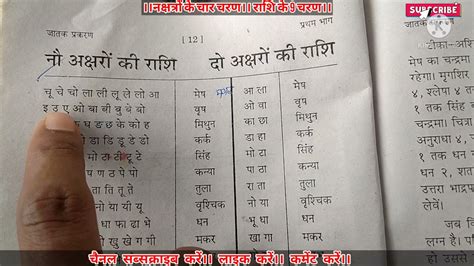 ।।नक्षत्रों के चार चरण।। राशि के 9 चरण।।
SUBSCRIBE
जातक प्रकरण
[ 12 ]
प्रथम भाग
नौ अक्षरों की राशि दो अक्षरों की राशि
चू चे चो ला ली लू ले लो आ मेष आ ला मेष
इ उ ए ओ बा बी बु बे बो वृष ओ वा वृष
घ ङ छ के को ह मिथुन का छा मिथुन
डा डि डू डे डो कर्क डा हा कर्क
मो टा टी टू टे सिंह मो टा सिंह
ण ठ पे पो कन्या पा ठा कन्या
ता ति तू ते तुला रा ता तुला
नो या यी यू वृश्चिक नो या वृश्चिक
धा फा ढा भे धन भू धा धन
खु खे गा गी मकर खा गा मकर
जातक प्रकरण
टीका-अश्वि
मेष का चन्द्रमा
रहेगा। मृगशि
४, श्लेषा ४ त
१ तक सिंह
चन्द्रमा। चित्रा
अनुराधा ४,
१ तक धन
उत्तरा भाद्र
लग्न है। पर
चैनल सब्सक्राइब करें।। लाइक करें।। कमेंट करें।।